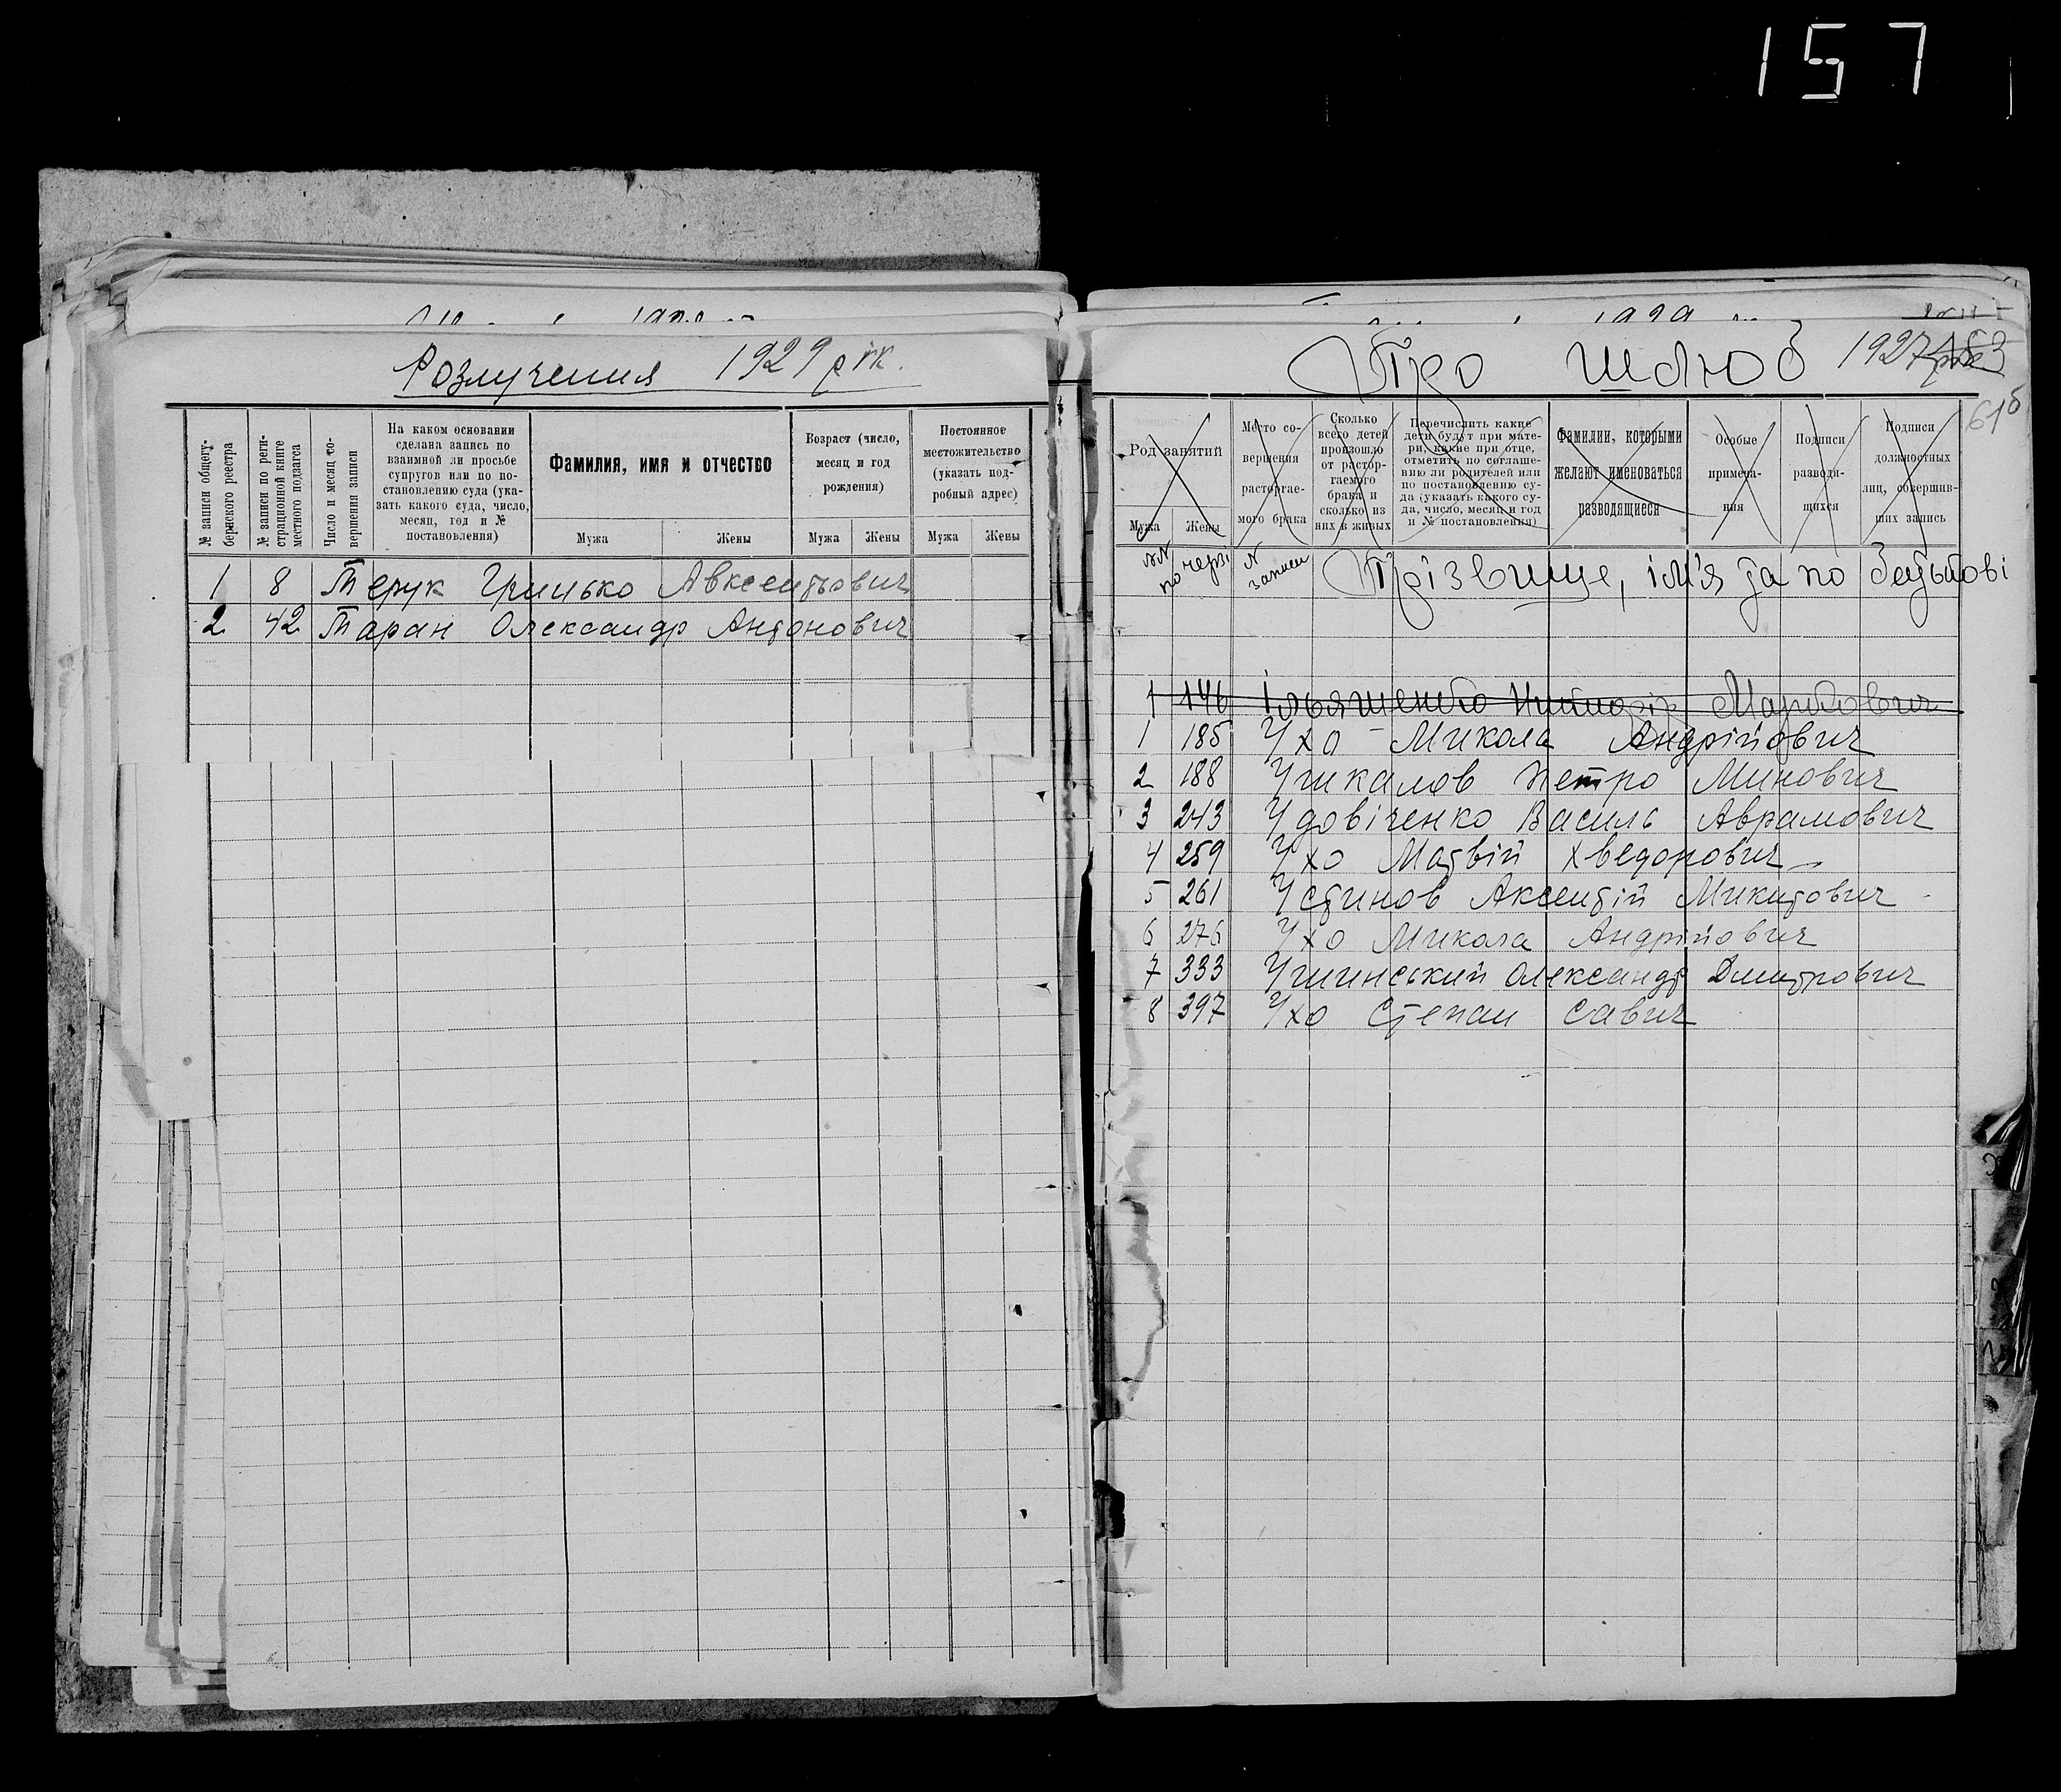 157
Розлучения 1929 рік.
№ записи общегу-
бернского реестра
№ записи по реги-
страционной книге
местного подзагса
Число и месяц со-
вершения записи
На каком основании
сделана запись по
взаимной ли просьбе
супругов или по по-
становлению суда (ука-
зать какого суда, число,
месяц, год и №
постановления)
Фамилия, имя и отчество
Мужа Жены
Возраст (число,
месяц и год
рождения)
Мужа Жены
Постоянное
местожительство
(указать под-
робный адрес)
Мужа Жены
1 8 Терук Грицько Авксентьович
2 42 Таран Олександр Антонович
Про шлюб 1927
61б
Род занятий
Мужа Жены
Место со-
вершения
расторгае-
мого брака
Сколько
всего детей
произошло
от растор-
гаемого
брака и
сколько из
них в живых
Перечислить какие
дети будут при мате-
ри, какие при отце,
отметить по соглаше-
нию ли родителей или
по постановлению су-
да (указать какого су-
да, число, месяц и год
и № постановления)
Фамилии, которыми
желают именоваться
разводящиеся
Особые
примеча-
ния
Подписи
разводя-
щихся
Подписи
должностных
лиц, совершив-
ших запись
№№ по черзі
N записи
Прізвище, ім'я та по батькові
1 146 Ільяшенко Маркович
1 185 Ухо Микола Андрійович
2 188 Ушкалов Петро Минович
3 243 Удовіченко Василь Аврамович
4 259 Ухо Матвій Хведорович
5 261 Устинов Аксентій Микитович
6 276 Ухо Микола Андрійович
7 333 Ушинський Олександр Дмитрович
8 397 Ухо Степан Савич